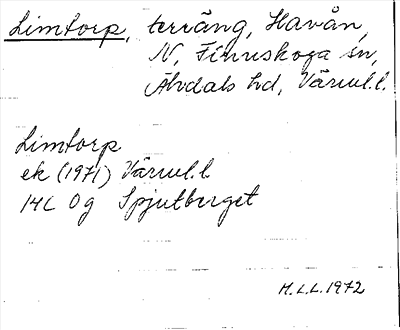 Limtorp, terräng, Havån,
N, Finnskoga sn,
Älvdals hd, Värml.l.
Limtorp
ek (1971) Värml.l.
14C 0g Spjutberget
M.L.L. 1972